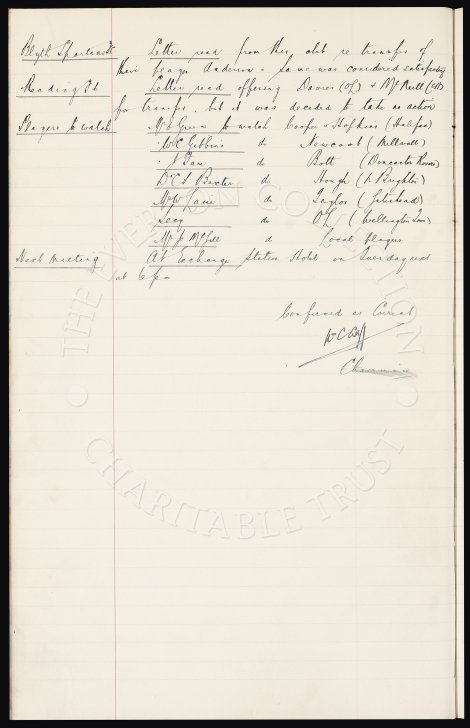 Blyth Spartans Fc Letter read from this club re transfer of
their player Anderson & same was considered satisfactory
Reading Fc Letter read offering Davies (OL) & McNeill (CH)
for transfer, but it was decided to take no action
Players to watch Mr Green to watch Cooper & Hopkins (Halifax)
" W.C. Gibbins do Newcomb (Millwall)
" J Daw do Bott (Doncaster Rovers)
Dr C.S. Baxter do Hough (N Brighton)
Mr W. do Taylor (Gateshead)
Secy do OL (Wellington Tn)
Mr J McGill d Local players
Next Meeting At Exchange Station Hotel on Tuesday next
at 6 pm
Confirmed as Correct
W C Cuff
Chairman
THE EVERTON COLLECTION
CHARITABLE TRUST